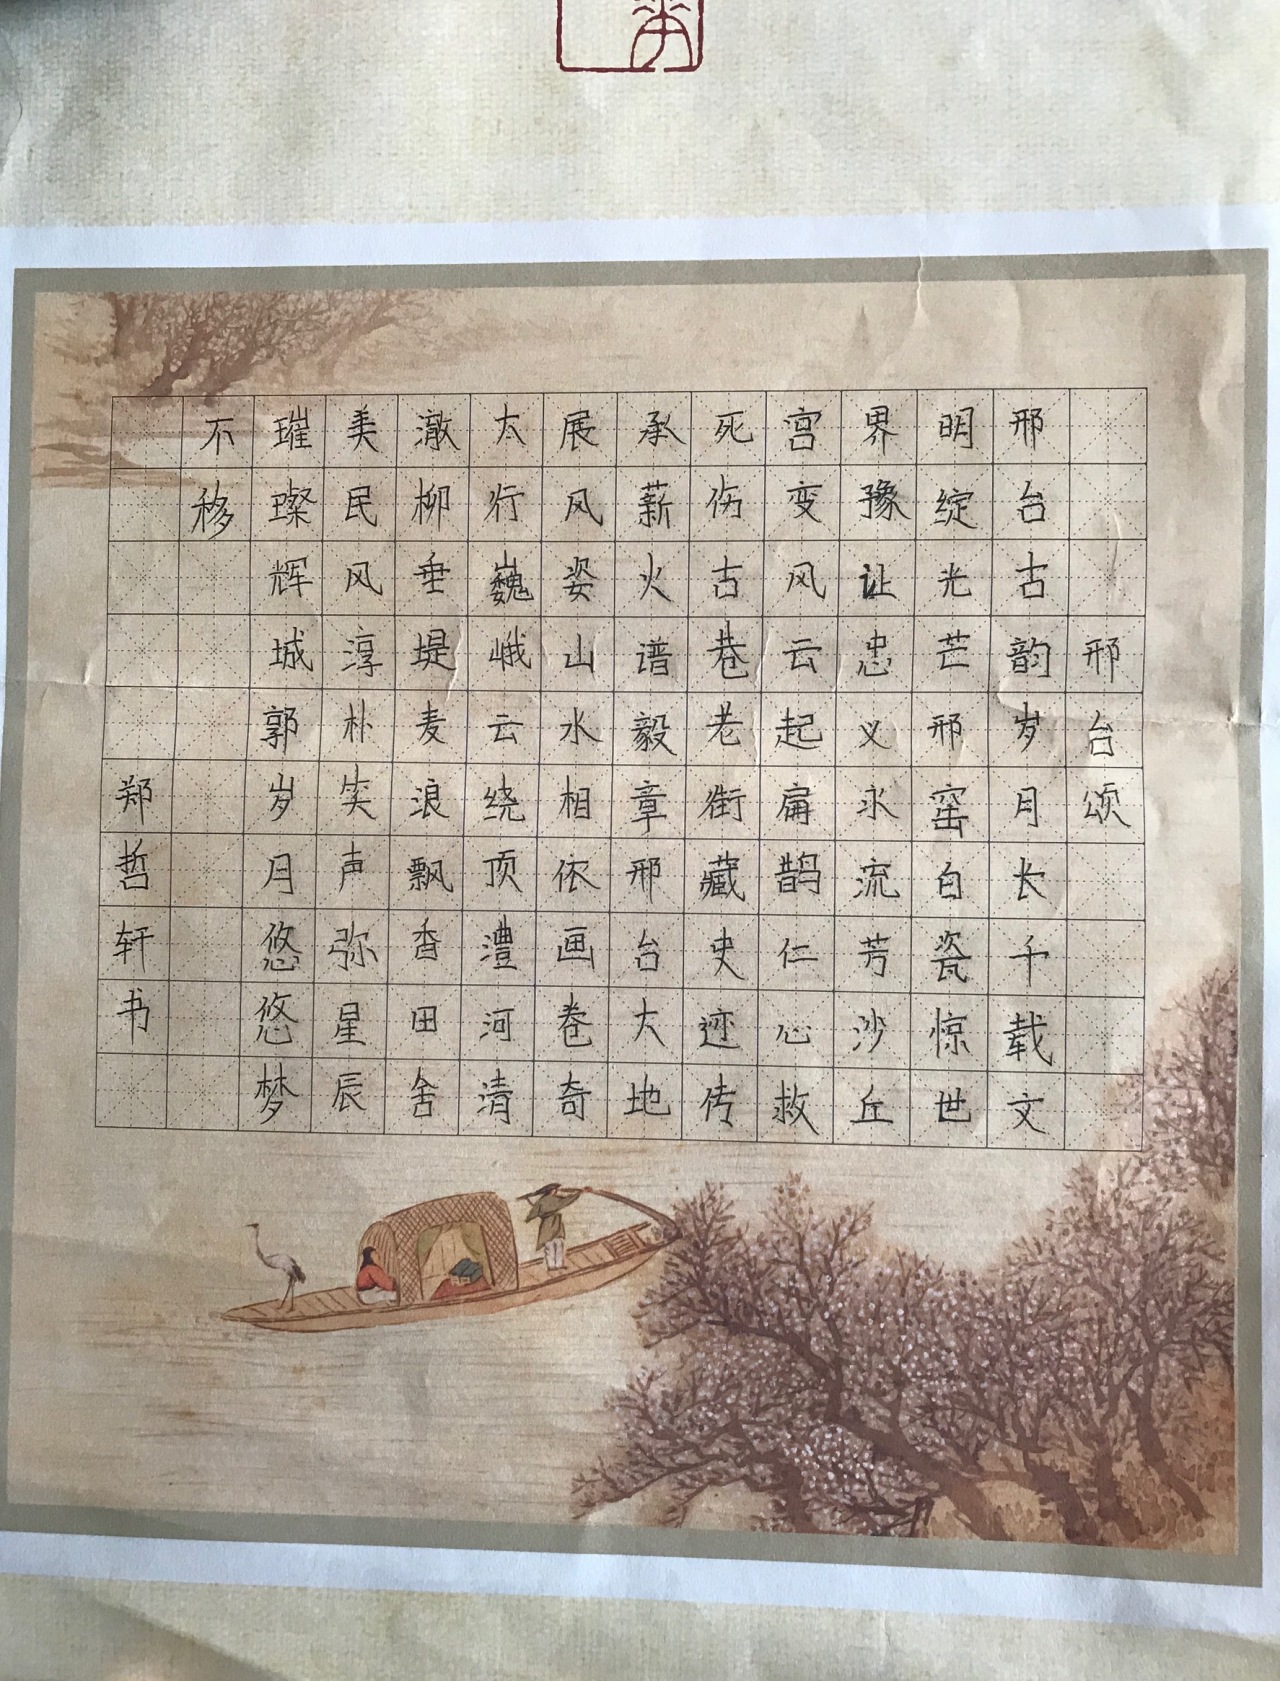 邢台颂
邢台古韵岁月长千载文
明绽光芒邢窑白瓷惊世
界豫让忠义永流芳沙丘
宫变风云起扁鹊仁心救
死伤古巷老街藏史迹传
承薪火谱毅章邢台大地
展风姿山水相依画卷奇
太行巍峨云绕顶澧河清
澈柳垂堤麦浪飘香田舍
美民风淳朴笑声弥星辰
璀璨辉城郭岁月悠悠梦
不移
郑哲轩书